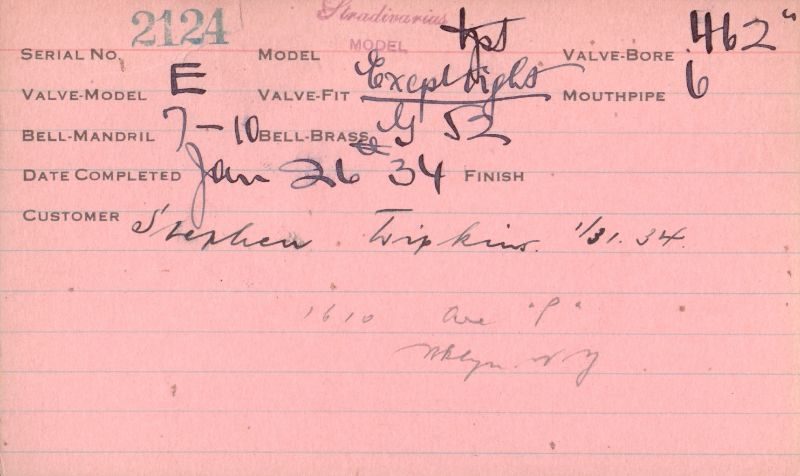 Stradivarius
SERIAL No. 2124 MODEL MODEL tpt VALVE-BORE .462"
VALVE-MODEL E VALVE-FIT Except tight MOUTHPIPE 6
BELL-MANDRIL 7-10 BELL-BRASS G 52
DATE COMPLETED Jan 26 34 FINISH
CUSTOMER Stephen Tipkins. 1/31.34.
1610 Ave "P"
Bklyn. N Y